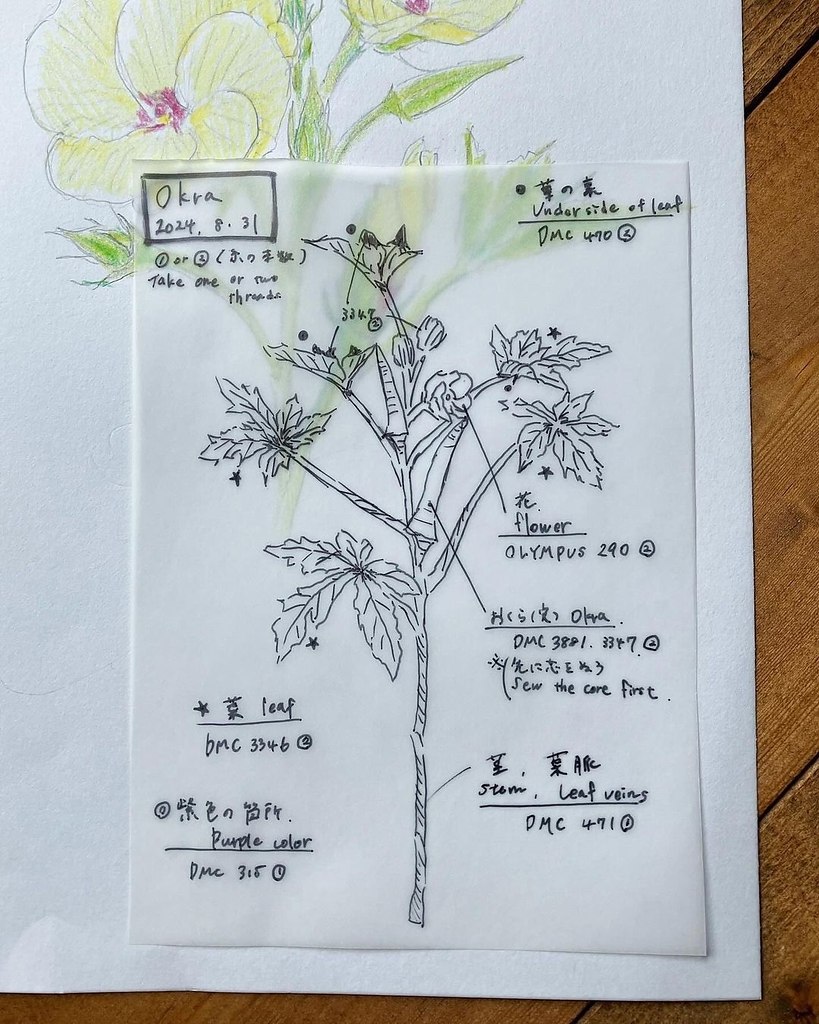 Okra
2024. 8. 31
① or ② (糸の本数)
Take one or two
threads
● 葉の裏
Underside of leaf
DMC 470 ②
3347 ②
花
flower
OLYMPUS 290 ②
おくら(実) Okra
DMC 3881. 3347 ②
※ 先に芯をぬう
Sew the core first.
★ 葉 leaf
DMC 3346 ②
茎, 葉脈
stem, Leaf veins
DMC 471 ①
◎ 紫色の箇所.
Purple color
DMC 315 ①